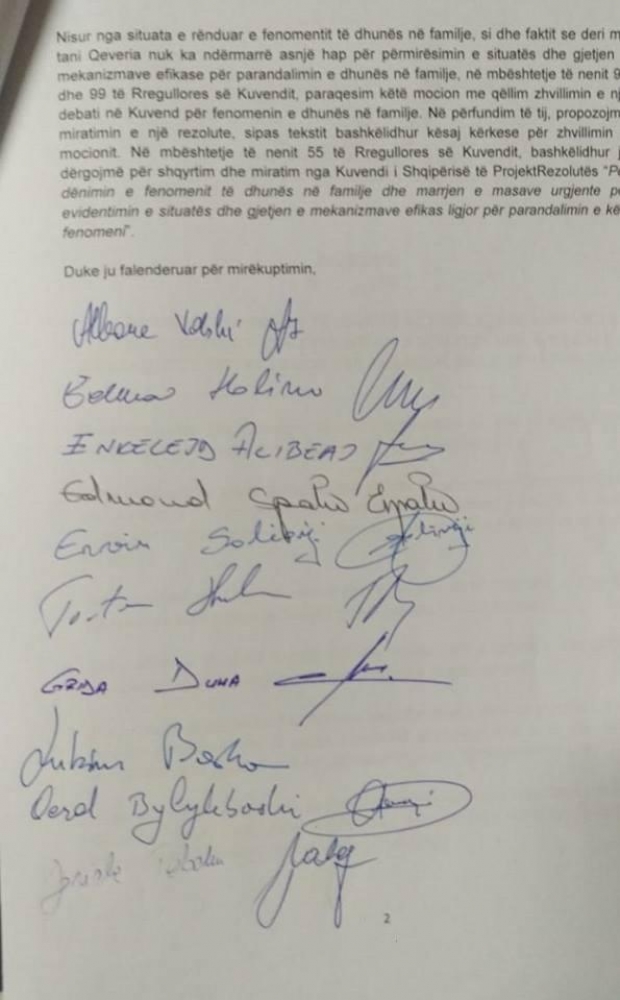 Nisur nga situata e rënduar e fenomentit të dhunës në familje, si dhe faktit se deri m
tani Qeveria nuk ka ndërmarrë asnjë hap për përmirësimin e situatës dhe gjetjen
mekanizmave efikase për parandalimin e dhunës në familje, në mbështetje të nenit 9
dhe 99 të Rregullores së Kuvendit, paraqesim këtë mocion me qëllim zhvillimin e nj
debati në Kuvend për fenomenin e dhunës në familje. Në përfundim të tij, propozojm
miratimin e një rezolute, sipas tekstit bashkëlidhur kësaj kërkese për zhvillimin
mocionit. Në mbështetje të nenit 55 të Rregullores së Kuvendit, bashkëlidhur
dërgojmë për shqyrtim dhe miratim nga Kuvendi i Shqipërisë të ProjektRezolutës "P
dënimin e fenomenit të dhunës në familje dhe marrjen e masave urgjente p
evidentimin e situatës dhe gjetjen e mekanizmave efikas ligjor për parandalimin e kë
fenomeni".
Duke ju falenderuar për mirëkuptimin,
Albana Vokshi
Halimo
ENKELEJD ALIBEAJ
Edmond Spaho ESpaho
Ervin Salianji
GRIDA DUMA
Luhsim Basha
Oerd Bylykbashi
2